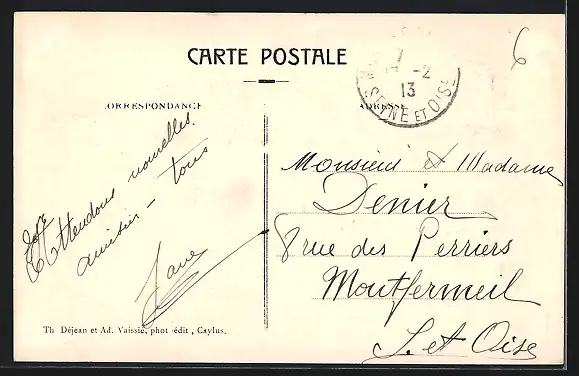 CARTE POSTALE
CORRESPONDANCE
ADRESSE
7
-2
13
SEINE ET OISE
6
Attendons nouvelles.
amitiés – tous
Jane
Monsieur & Madame
Denier
8 rue des Perriers
Montfermeil
S. et Oise
Th Déjean et Ad. Vaissié, phot-édit, Caylus.